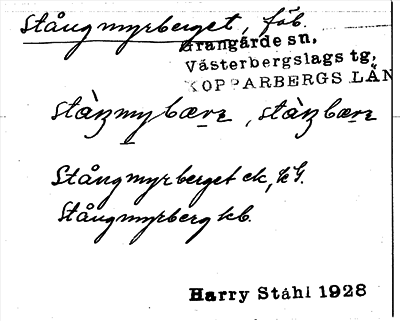 Stångmyrberget, fäb.
Grangärde sn,
Västerbergslags tg,
KOPPARBERGS LÄN
Stångmyrberget ek,
Stångmyrberg kb.
Harry Ståhl 1928